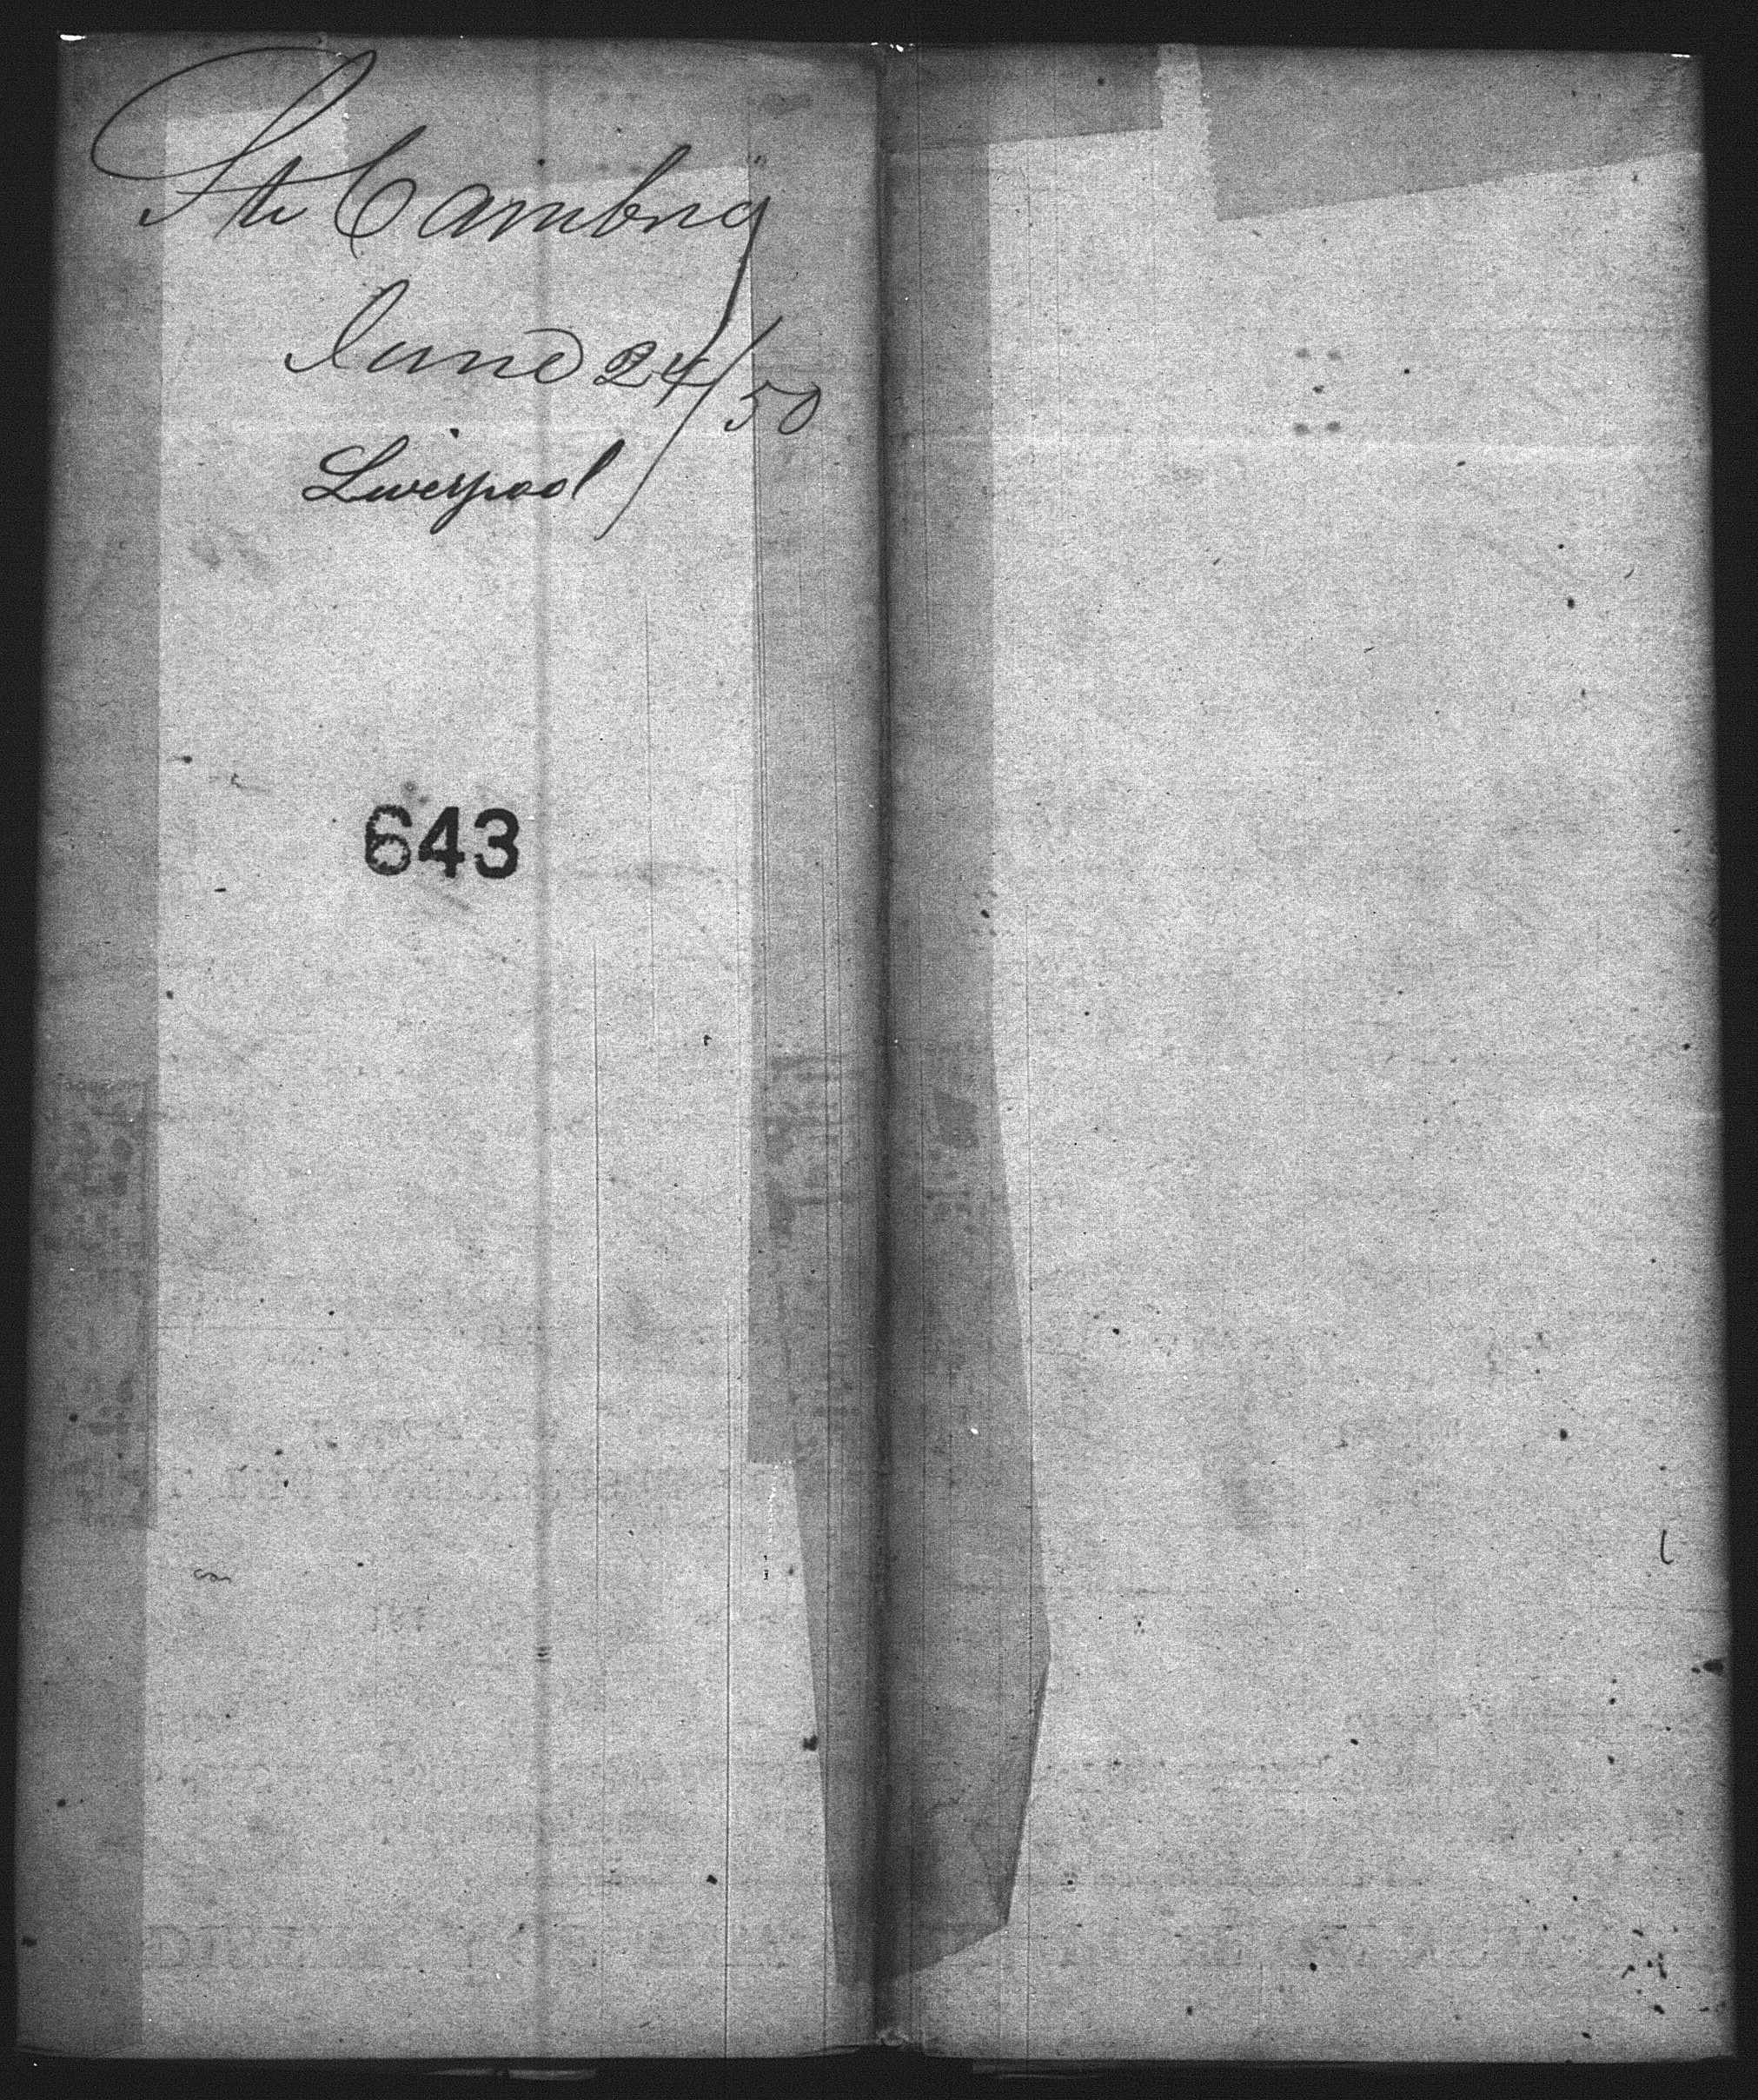 Str Cambria
June 24/50
Liverpool
643